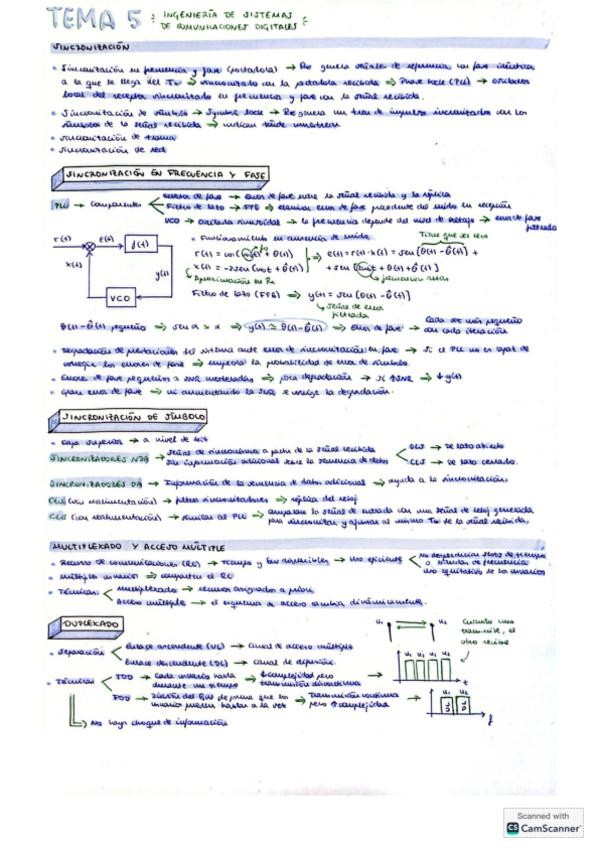 TEMA 5: INGENIERÍA DE SISTEMAS
DE COMUNICACIONES DIGITALES
SINCRONIZACIÓN
• Sincronización en frecuencia y fase (portadora) → Rx genera señales de referencia con fase idéntica
a la que se llega del Tx → sincronizado con la portadora recibida → Phase lock (PLL) → oscilador
local del receptor sincronizado en frecuencia y fase con la señal recibida.
• Sincronización de símbolo → Symbol lock → Rx genera un tren de impulsos sincronizados con los
símbolos de la señal recibida → indican dónde muestrear
• Sincronización de trama
• Sincronización de red
SINCRONIZACIÓN EN FRECUENCIA Y FASE
PLL → Componentes
→ error de fase entre la señal recibida y la réplica
Filtro de lazo → FPB → eliminar error de fase procedente del ruido en recepción
VCO → oscilador sinusoidal → la frecuencia depende del nivel de voltaje → error de fase
filtrado
• Funcionamiento en ausencia de ruido
Tiene que ser cero
r(t) e(t) f(t)
x(t) y(t)
VCO
r(t) = cos(ω₀t + θ(t))
x(t) = -2sen(ω₀t + θ̂(t))
e(t) = r(t)·x(t) = sen[θ(t) - θ̂(t)] +
+ sen[2ω₀t + θ(t) + θ̂(t)]
Aproximación en Rx
frecuencias altas
Filtro de lazo (FPB) → y(t) = sen[θ(t) - θ̂(t)]
señal de error
filtrada
θ(t) - θ̂(t) pequeño → sen α ≈ α → y(t) ≈ θ(t) - θ̂(t) → error de fase → Cada vez más pequeño
con cada iteración
• Degradación de prestaciones del sistema ante error de sincronización en fase → Si el PLL no es capaz de
corregir los errores de fase → empeora la probabilidad de error de símbolo.
• Errores de fase pequeños a SNR moderadas → poca degradación → Si ↑SNR → ↓
• Gran error de fase → ni aumentando la SNR se corrige la degradación.
SINCRONIZACIÓN DE SÍMBOLO
• Capa superior → a nivel de bit
SINCRONIZADORES NDA → Señales de sincronismo a partir de la señal recibida
Sin información adicional sobre la secuencia de datos
OLS → De lazo abierto
CLS → De lazo cerrado.
SINCRONIZADORES DA → Información de la secuencia de datos adicional → ayuda a la sincronización
OLS (sin realimentación) → filtros sincronizadores → réplica del reloj
CLS (con realimentación) → similar al PLL → comparan la señal de entrada con una señal de reloj generada
para sincronizar y ajustar al mismo de la señal recibida.
MULTIPLEXADO Y ACCESO MÚLTIPLE
• Recurso de comunicaciones (RC) → Tiempo y BW disponibles → Uso eficiente
no desperdiciar slots de tiempo
o bandas de frecuencia
uso equitativo de los usuarios
• Múltiples usuarios → comparten el RC
• Técnicas
Multiplexado → recursos asignados a priori
Acceso múltiple → el esquema de acceso cambia dinámicamente.
DUPLEXADO
• Separación
Enlace ascendente (UL) → canal de acceso múltiple
Enlace descendente (DL) → canal de difusión.
• Técnicas
TDD → Cada usuario habla
durante un tiempo → complejidad pero
transmisión discontinua
FDD → División del BW de forma que los
usuarios pueden hablar a la vez → Transmisión continua
pero ↑ complejidad
No haya choque de información
u₁ u₂
Cuando uno
transmite, el
otro recibe
u₁ u₂ u₁ u₂
t
u₁ u₂
f
Scanned with
CS CamScanner